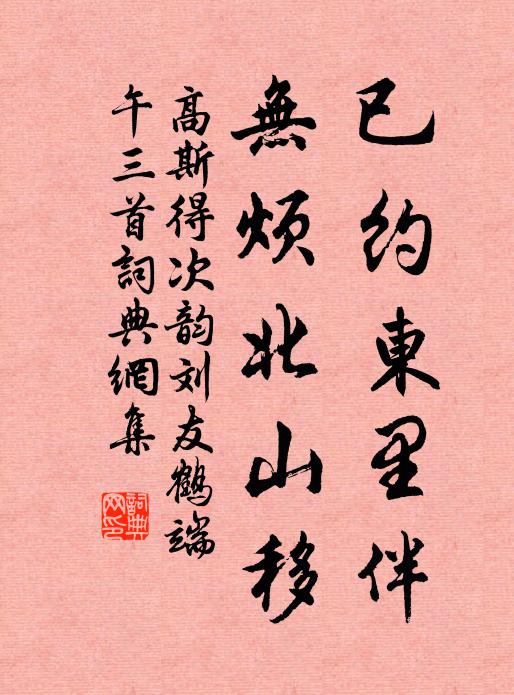 已約東里伴
無煩北山移
高斯得次韵刘友鶴端
午三首詞典網集
詞典
网印